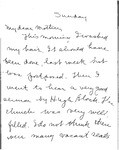 Sunday
My dear Mother
This morning I washed
my hair. It should have
been done last week but
was postponed. Then I
went to hear a very good
sermon by Hugh Black. The
church was very well
filled. I do not think there
were many vacant seats